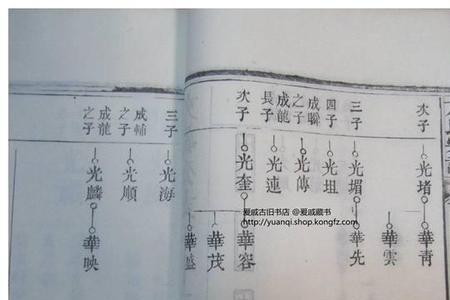 次子
光堵
華青
華雲
三子
光堳
華先
四子
光坥
成驎之子
光傳
成龍長子
光連
次子
光奎
華容
華茂
華盛
三子
光海
成輔之子
光順
成龍之子
光麟
華映
爱戚古旧书店 @爱戚藏书
http://yuanqi.shop.kongfz.com/